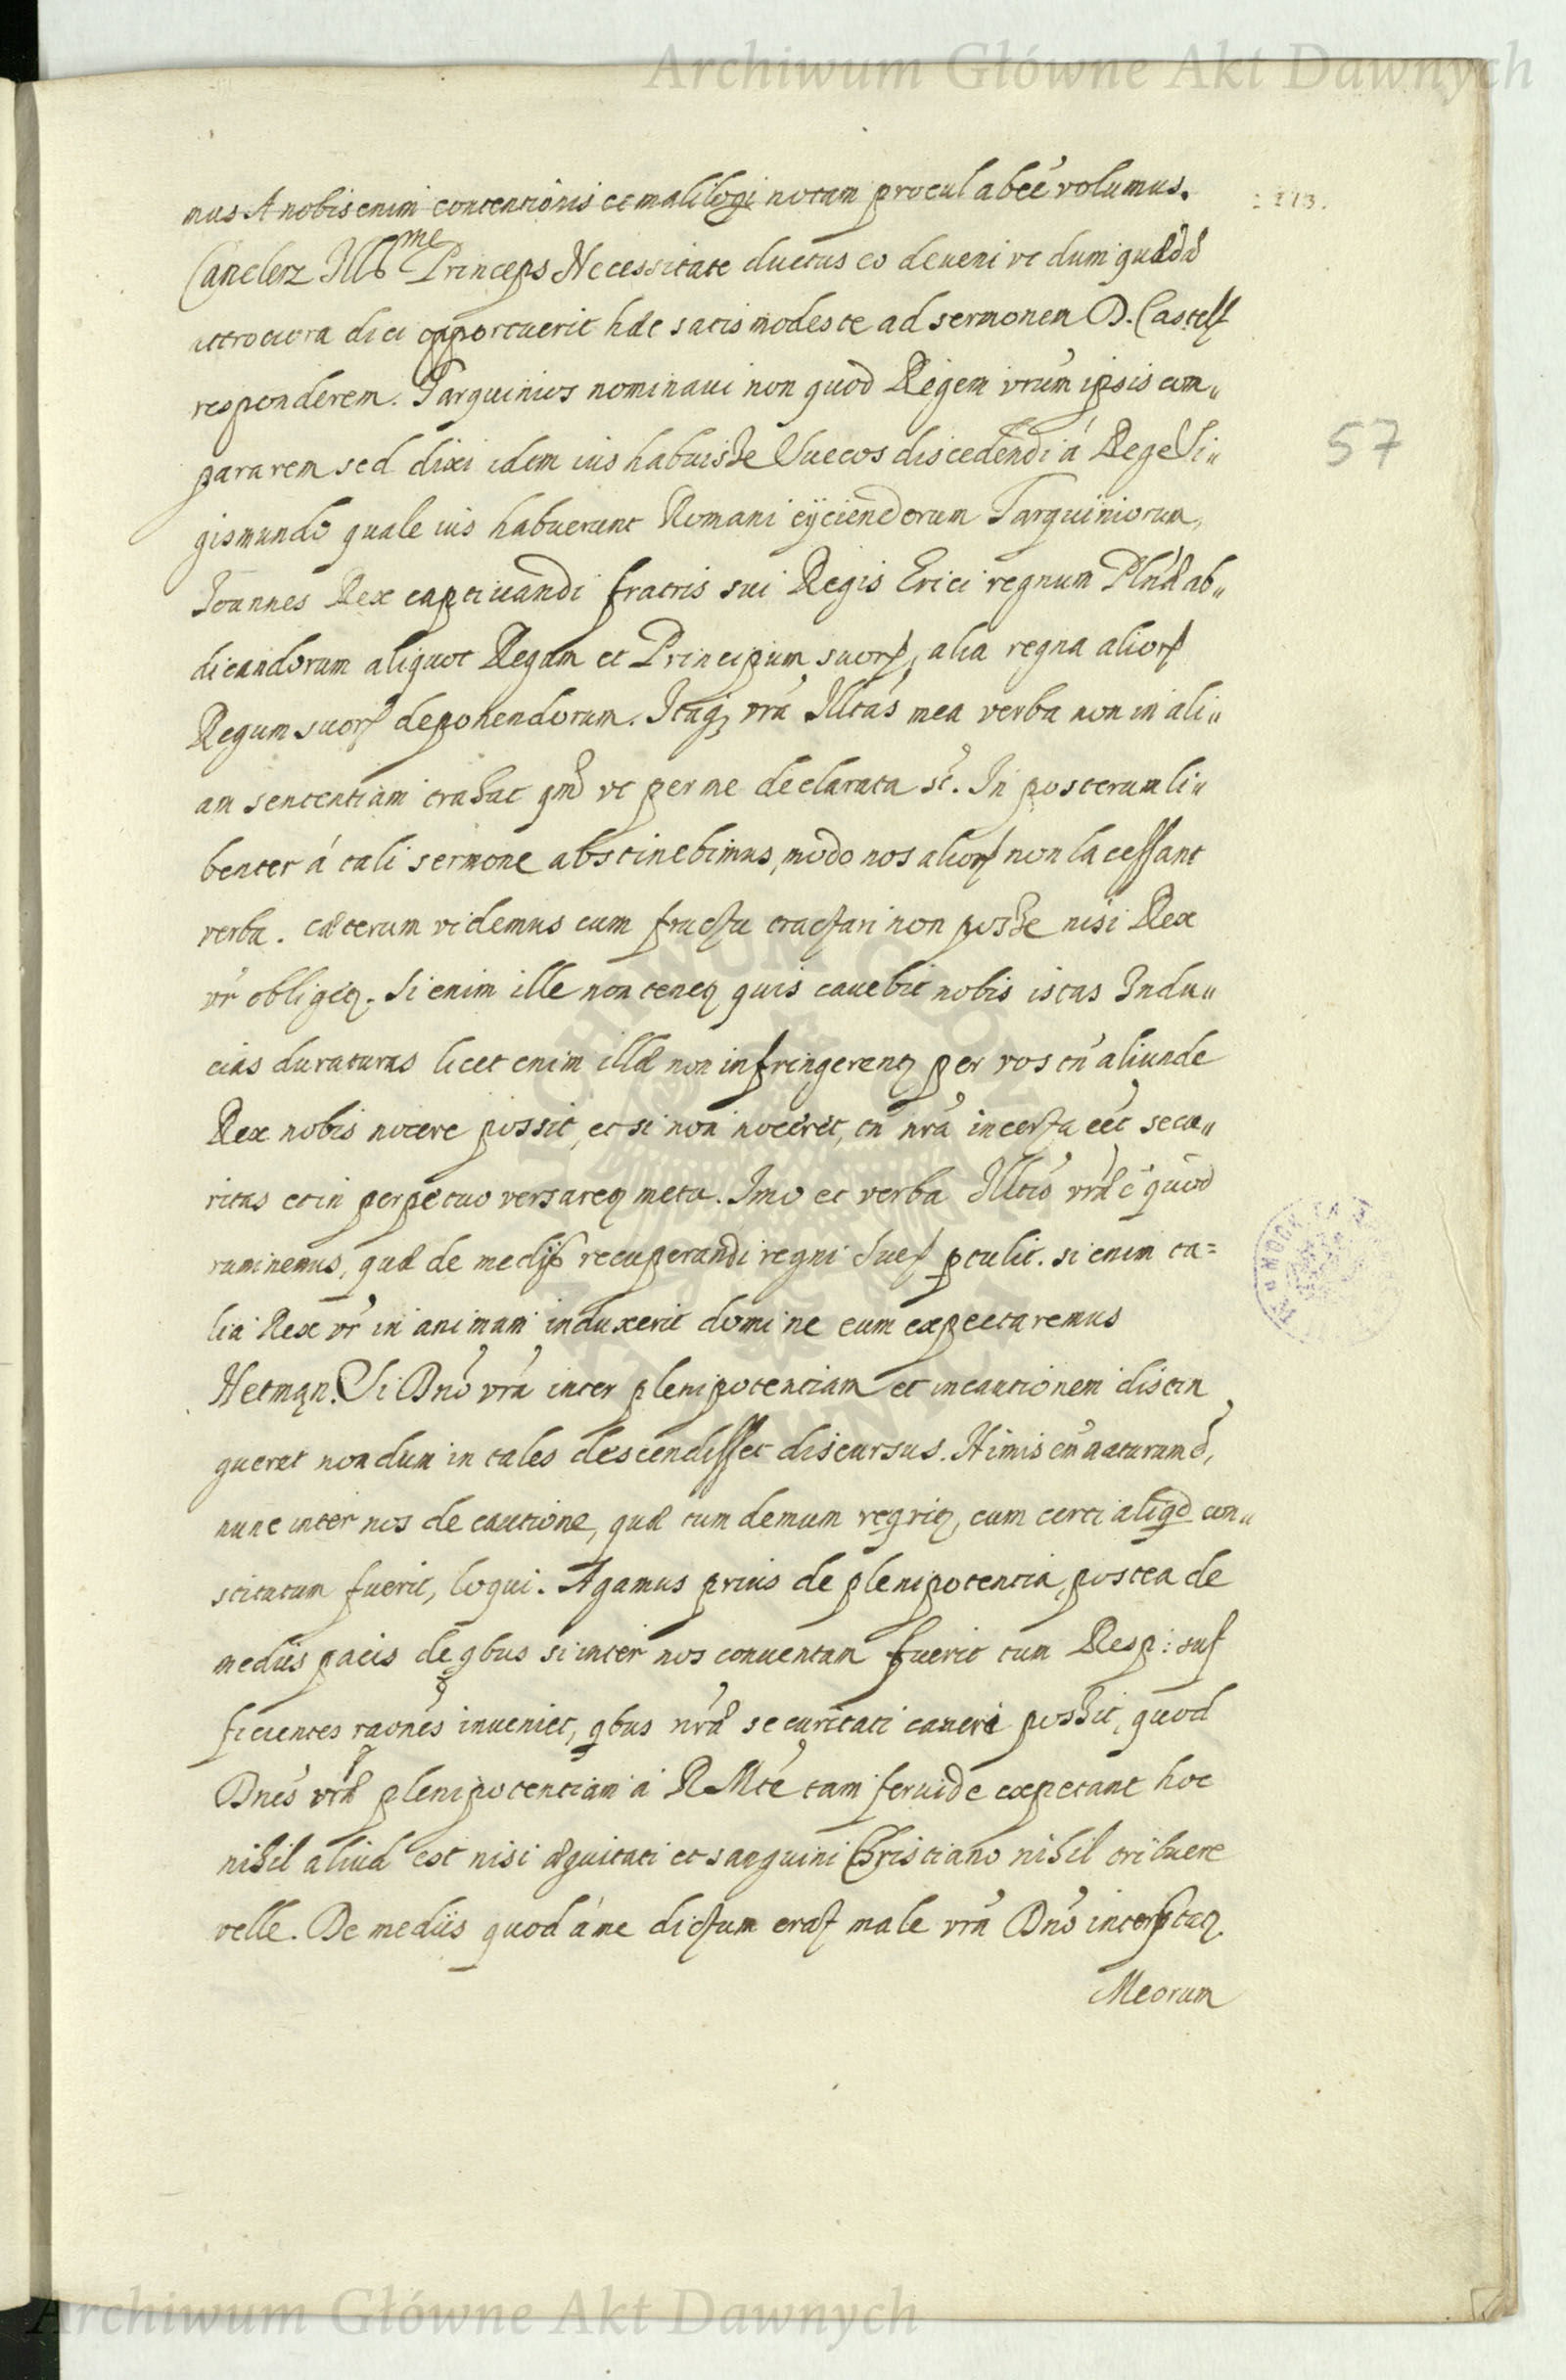 Archiwum Główne Akt Dawnych
: 113.
mus A nobis enim contentionis et maliloqi notam procul abeē volumus.
Canclerz Illᵇme Princeps Necessitate ductus eo deveni vt dum quædā
attrociora dici opportuerit hæc satis modeste ad sermonem D. Castell
responderem. Tarquinios nominavi non quod Regem vrūm ipsis com„
57
pararem sed dixi idem ius habuisse Suecos discedendi á Rege Si„
gismundo quale ius habuerunt Romani eÿciendorum Tarquiniorum,
Joannes Rex captivandi fratris sui Regis Erici regnum Plnæ ab„
dicandorum aliquot Regum et Principum suorꝝ, alia regna aliorꝝ
Regum suorꝝ deponendorum. Itaqꝫ vrā Illtās mea verba non in ali„
am sententiam trahat qm̄ vt per me declarata st̄. In posterum li„
benter á tali sermone abstinebimus, modo nos aliorꝝ non lacessant
verba. Cæterum videmus cum fructu tractari non posse nisi Rex
vr̄ obligetꝫ. Si enim ille non tenetꝫ quis cavebit nobis istas Indu„
cias duraturas licet enim illæ non infringerentꝫ per vos tn̄ aliunde
Rex nobis nocere possit, et si non noceret, tn̄ nrā incerta eēt secu„
ritas et in perpetuo versaretꝫ metu. Imo et verba Illtis vræ ē quod
ruminemus, quæ de medijs recuperandi regni Sueꝭ ꝓtulit. si enim ta=
lia Rex vr̄ in animum induxerit domi ne eum expectaremus
Hetman. Si Dnō vrā inter plenipotentiam et incautionem distin
gueret nondum in tales descendisset discursus. Nimis em̄ naturum ē,
nunc inter nos de cautione, quæ tum demum reqritꝫ, cum certi aliqd con„
stitutum fuerit, loqui. Agamus prius de plenipotentia, postea de
mediis pacis de qbus si inter nos conventum fuerit tum Resp: suf
ficientes raones inveniet, qbus nræ securitati caveri possit, quod
Dnēs vræ plenipotentiam á RMtē tam fervide expetant hoc
nihil aliud est nisi æquitati et sanguini Christiano nihil tribuere
velle. De mediis quod á me dictum erat male vrā Dnō interptatꝫ.
Meorum
Archiwum Główne Akt Dawnych